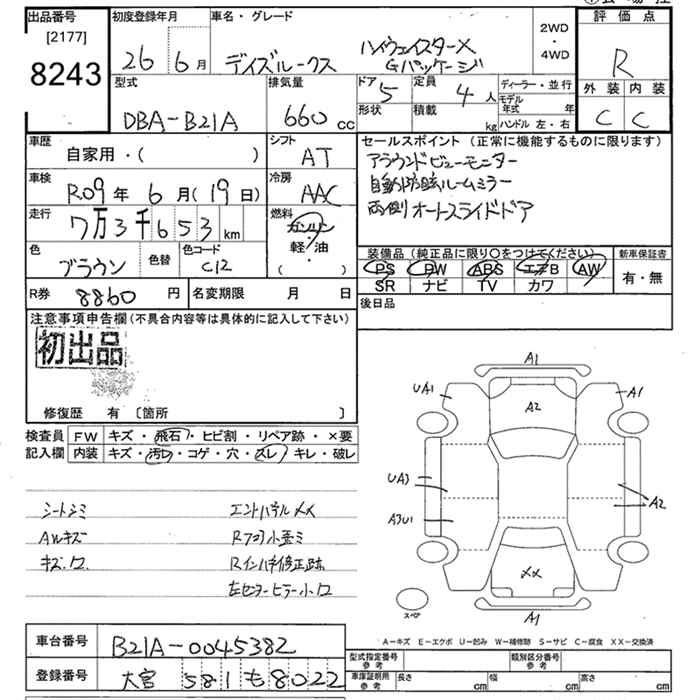 出品番号
[2177]
8243
初度登録年月
26 6月
車名・グレード
デイズルークス
ハイウェイスターX
Gパッケージ
2WD
・
4WD
評価点
R
外装 内装
C C
型式
DBA-B21A
排気量
660 cc
ドア 5
定員 4人
形状
積載 kg
ディーラー・並行
モデル年式 年
ハンドル 左・右
車歴
自家用・( )
シフト
AT
車検
R09年6月(19日)
冷房
AAC
走行
7万3千653km
燃料
ガソリン
・
軽/油
( )
色
ブラウン
色替
色コード
C12
R券 8860円
名変期限 月 日
セールスポイント(正常に機能するものに限ります)
アラウンドビューモニター
自動防眩ルームミラー
両側オートスライドドア
装備品(純正品に限り○をつけてください)
PS PW ABS エアB AW
SR ナビ TV カワ
新車保証書
有・無
後日品
注意事項申告欄(不具合内容等は具体的に記入して下さい)
初出品
修復歴 有 〔箇所 〕
検査員
記入欄
FW キズ・飛石・ヒビ割・リペア跡・×要
内装 キズ・汚レ・コゲ・穴・スレ・キレ・破レ
シートシミ
AWキズ
キズ.ワ.
エンドパネルXX
Rフロア小歪ミ
Rインハチ修正跡
左センターピラー小ワ
A1
UA1
A1
A2
UA3
A3U1
A2
XX
A1
スペア
A-キズ E-エクボ U-凹み W-補修跡 S-サビ C-腐食 XX-交換済
車台番号
B21A-0045382
登録番号
大宮 581 も 8022
型式指定番号
参考
類別区分番号
参考
車庫証明用
参考
長さ cm
幅 cm
高さ cm